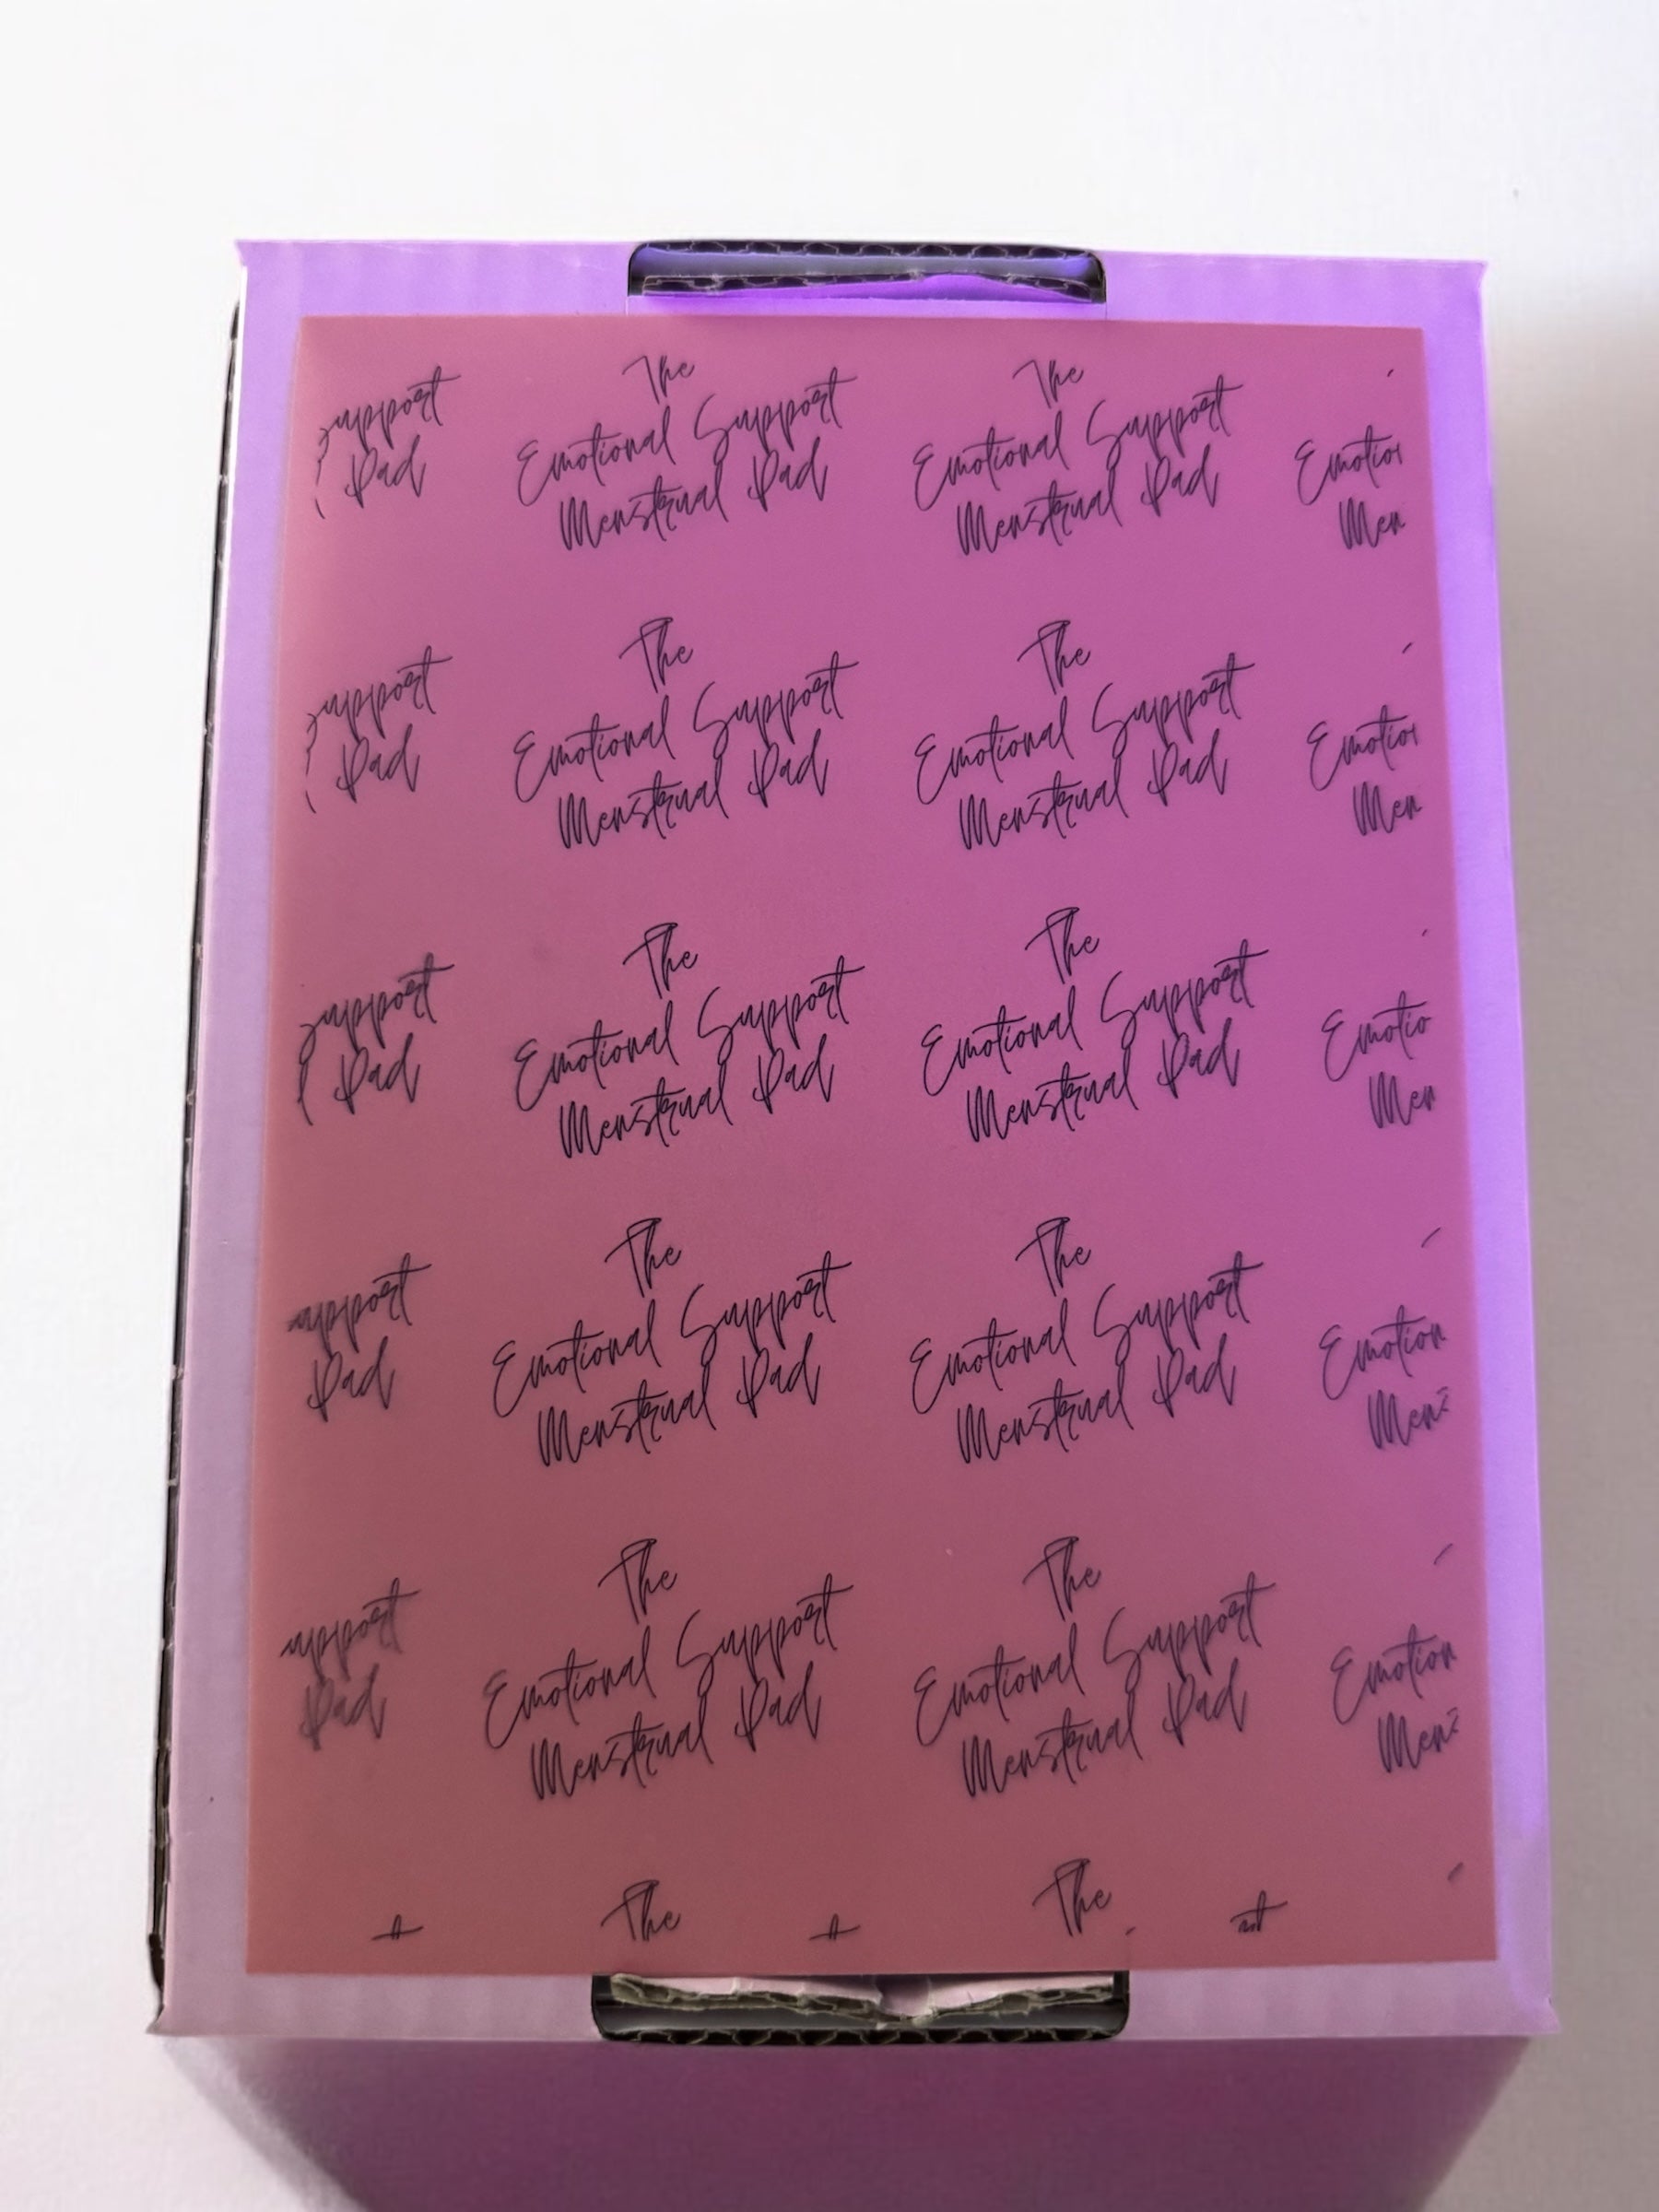 The The
Support Emotional Support Emotional Support Emotio
Pad Menstrual Pad Menstrual Pad Men
The The
Support Emotional Support Emotional Support Emotio
Pad Menstrual Pad Menstrual Pad Men
The The
Support Emotional Support Emotional Support Emotio
Pad Menstrual Pad Menstrual Pad Men
The The
upport Emotional Support Emotional Support Emotion
Pad Menstrual Pad Menstrual Pad Mens
The The
upport Emotional Support Emotional Support Emotion
Pad Menstrual Pad Menstrual Pad Mens
The The